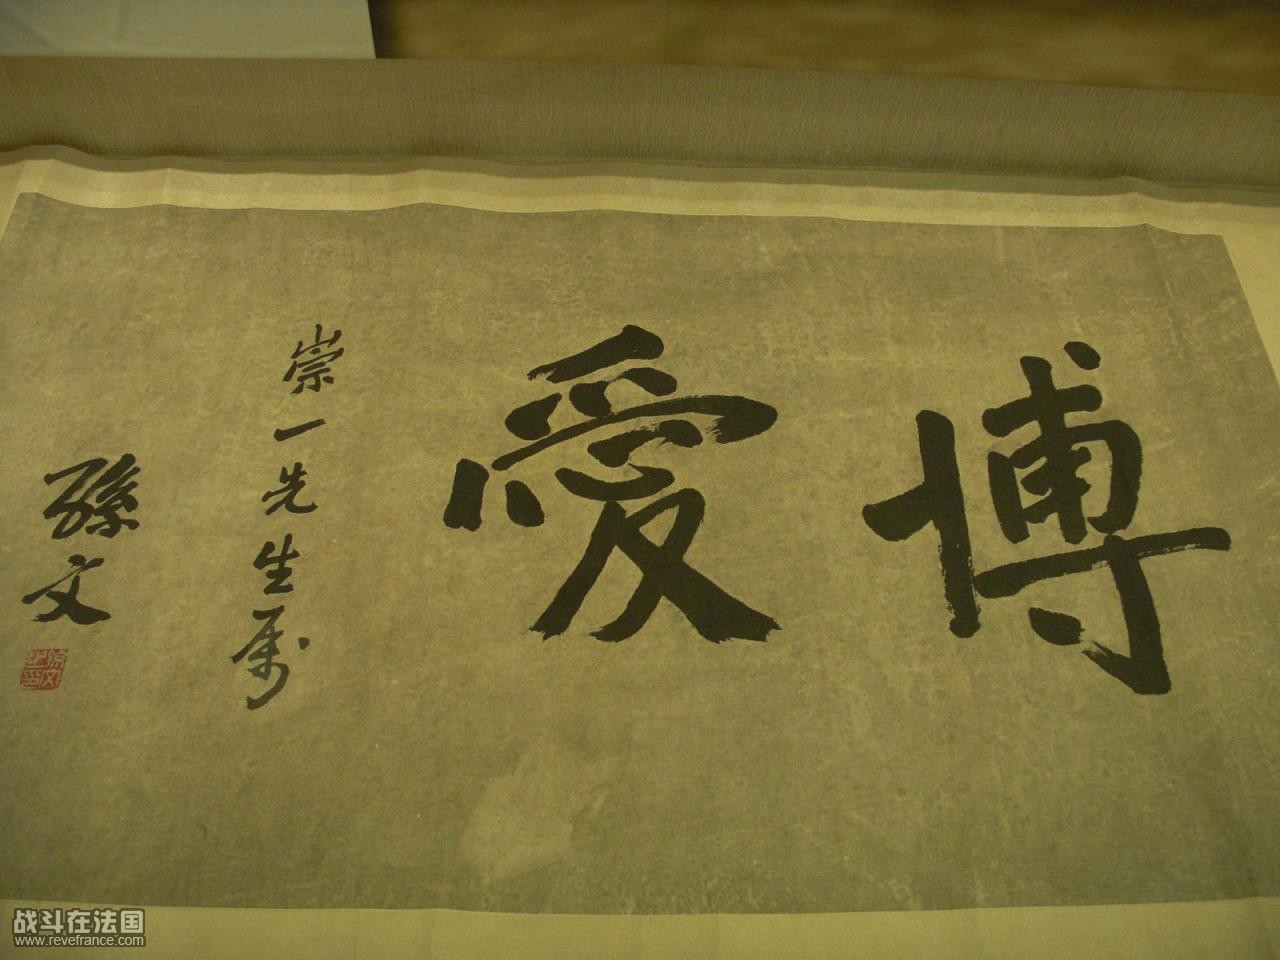 博愛
崇一先生属
孫文
孫文之印
战斗在法国
www.revefrance.com